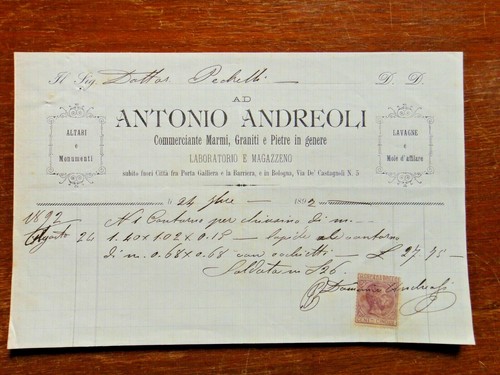 Il Sig Dottor Pedrelli D. D.
AD
ANTONIO ANDREOLI
Commerciante Marmi, Graniti e Pietre in genere
LABORATORIO E MAGAZZENO
subito fuori Città fra Porta Galliera e la Barriera, e in Bologna, Via De' Castagnoli N. 5
ALTARI
e
Monumenti
LAVAGNE
e
Mole d'affilare
li 24 9bre 1892
1892 N. 1 Contorno per chiusino di m
Agosto 24 1.40x102x0.15 lapide al contorno
di m. 0.68x0.68 con occhietti L 27.75
Saldata in
Domenico Andreoli